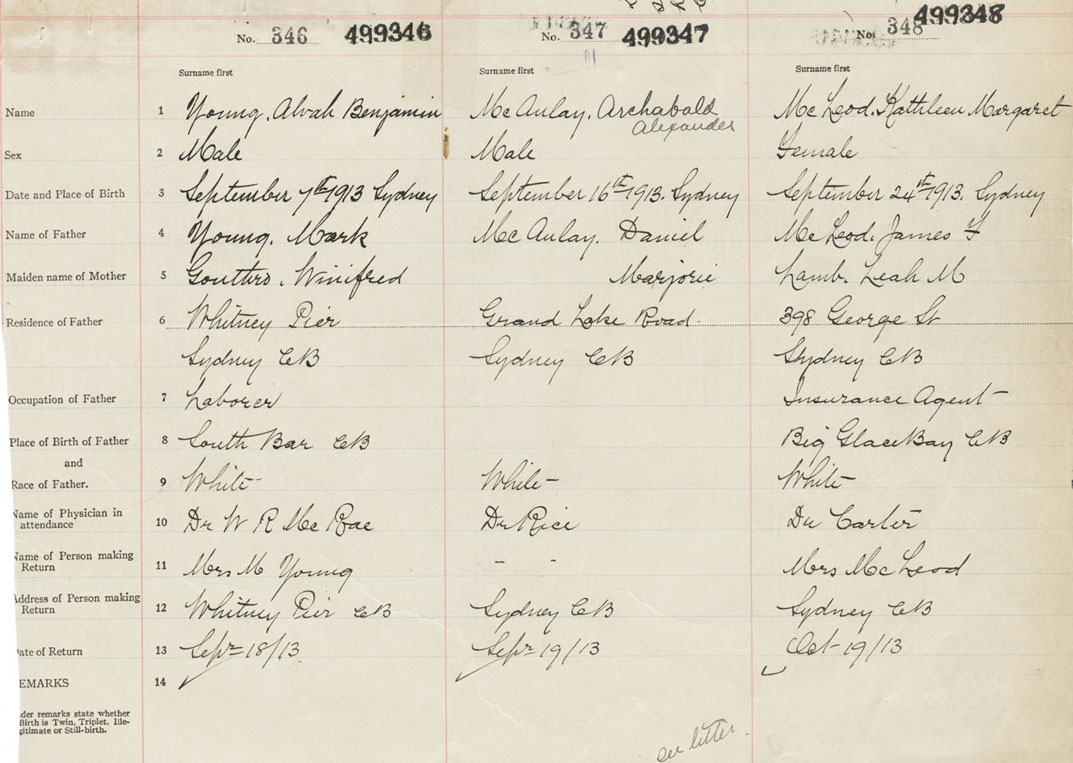 No. 346 499346 No. 347 499347 No. 348 499348
Surname first Surname first Surname first
Name 1 Young, Alvah Benjamin McAulay, Archabald McLeod, Kathleen Margaret
Alexander
Sex 2 Male Male Female
Date and Place of Birth 3 September 7th 1913 Sydney September 16th 1913. Sydney September 24th 1913. Sydney
Name of Father 4 Young, Mark McAulay, Daniel McLeod, James F
Maiden name of Mother 5 Gouthro, Winifred Marjorie Lamb, Leah M
Residence of Father 6 Whitney Pier Grand Lake Road. 398 George St
Sydney CB Sydney CB Sydney CB
Occupation of Father 7 Laborer Insurance Agent
Place of Birth of Father 8 South Bar CB Big Glace Bay CB
and
Race of Father. 9 White White White
Name of Physician in
attendance 10 Dr W R McRae Dr Rice Dr Carter
Name of Person making
Return 11 Mrs M Young - - Mrs McLeod
Address of Person making
Return 12 Whitney Pier CB Sydney CB Sydney CB
ate of Return 13 Sept 18/13 Sept 19/13 Oct 19/13
EMARKS 14
der remarks state whether
Birth is Twin, Triplet, Ille-
gitimate or Still-birth.
see letter.